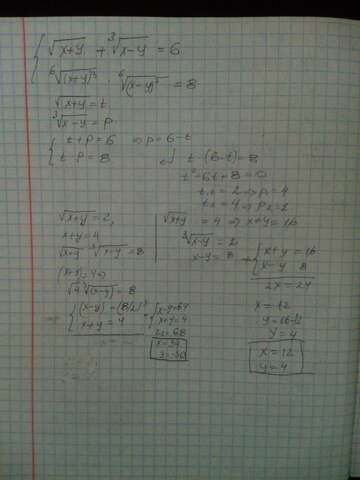 √x+y + ³√x-y = 6
⁶√(x+y)³ · ⁶√(x-y)² = 8
√x+y = t
³√x-y = p
t+p=6 ⇒ p=6-t
t · p = 8
t · (6-t)=8
t²-6t+8=0
t₁ = 2 ⇒ p = 4
t₂ = 4 ⇒ p = 2
√x+y = 2,
x+y=4
√x+y · ³√x-y = 8
√4 · ³√(x-y) = 8
(x-y) = (8/2)³
x+y = 4
x-y=64
x+y=4
2x=68
x=34
y=-30
√x+y = 4 ⇒ x+y=16
³√x-y = 2
x-y = 8
x+y = 16
x-y 8
2x=24
x=12
y=16-12
y=4
x=12
y=4